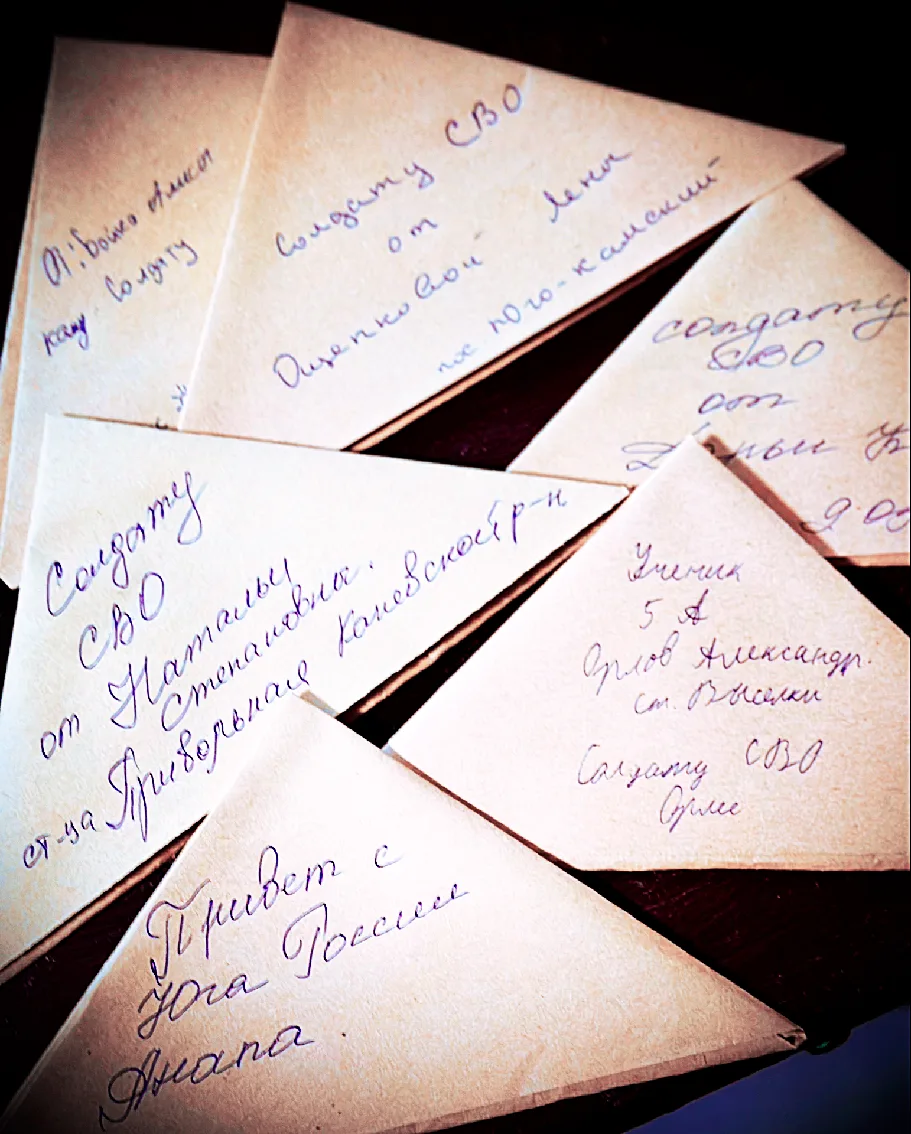 От: Бойко
кому Солдату
Солдату СВО
от
Ощепковой Лены
пос Юго-Камский
солдату
СВО
от
Солдату
СВО
от Натальи
Степановны.
ст-ца Привольная Каневской р-н
Ученик
5 А
Орлов Александр.
ст. Выселки
Солдату СВО
Привет с
Юга России
Анапа.